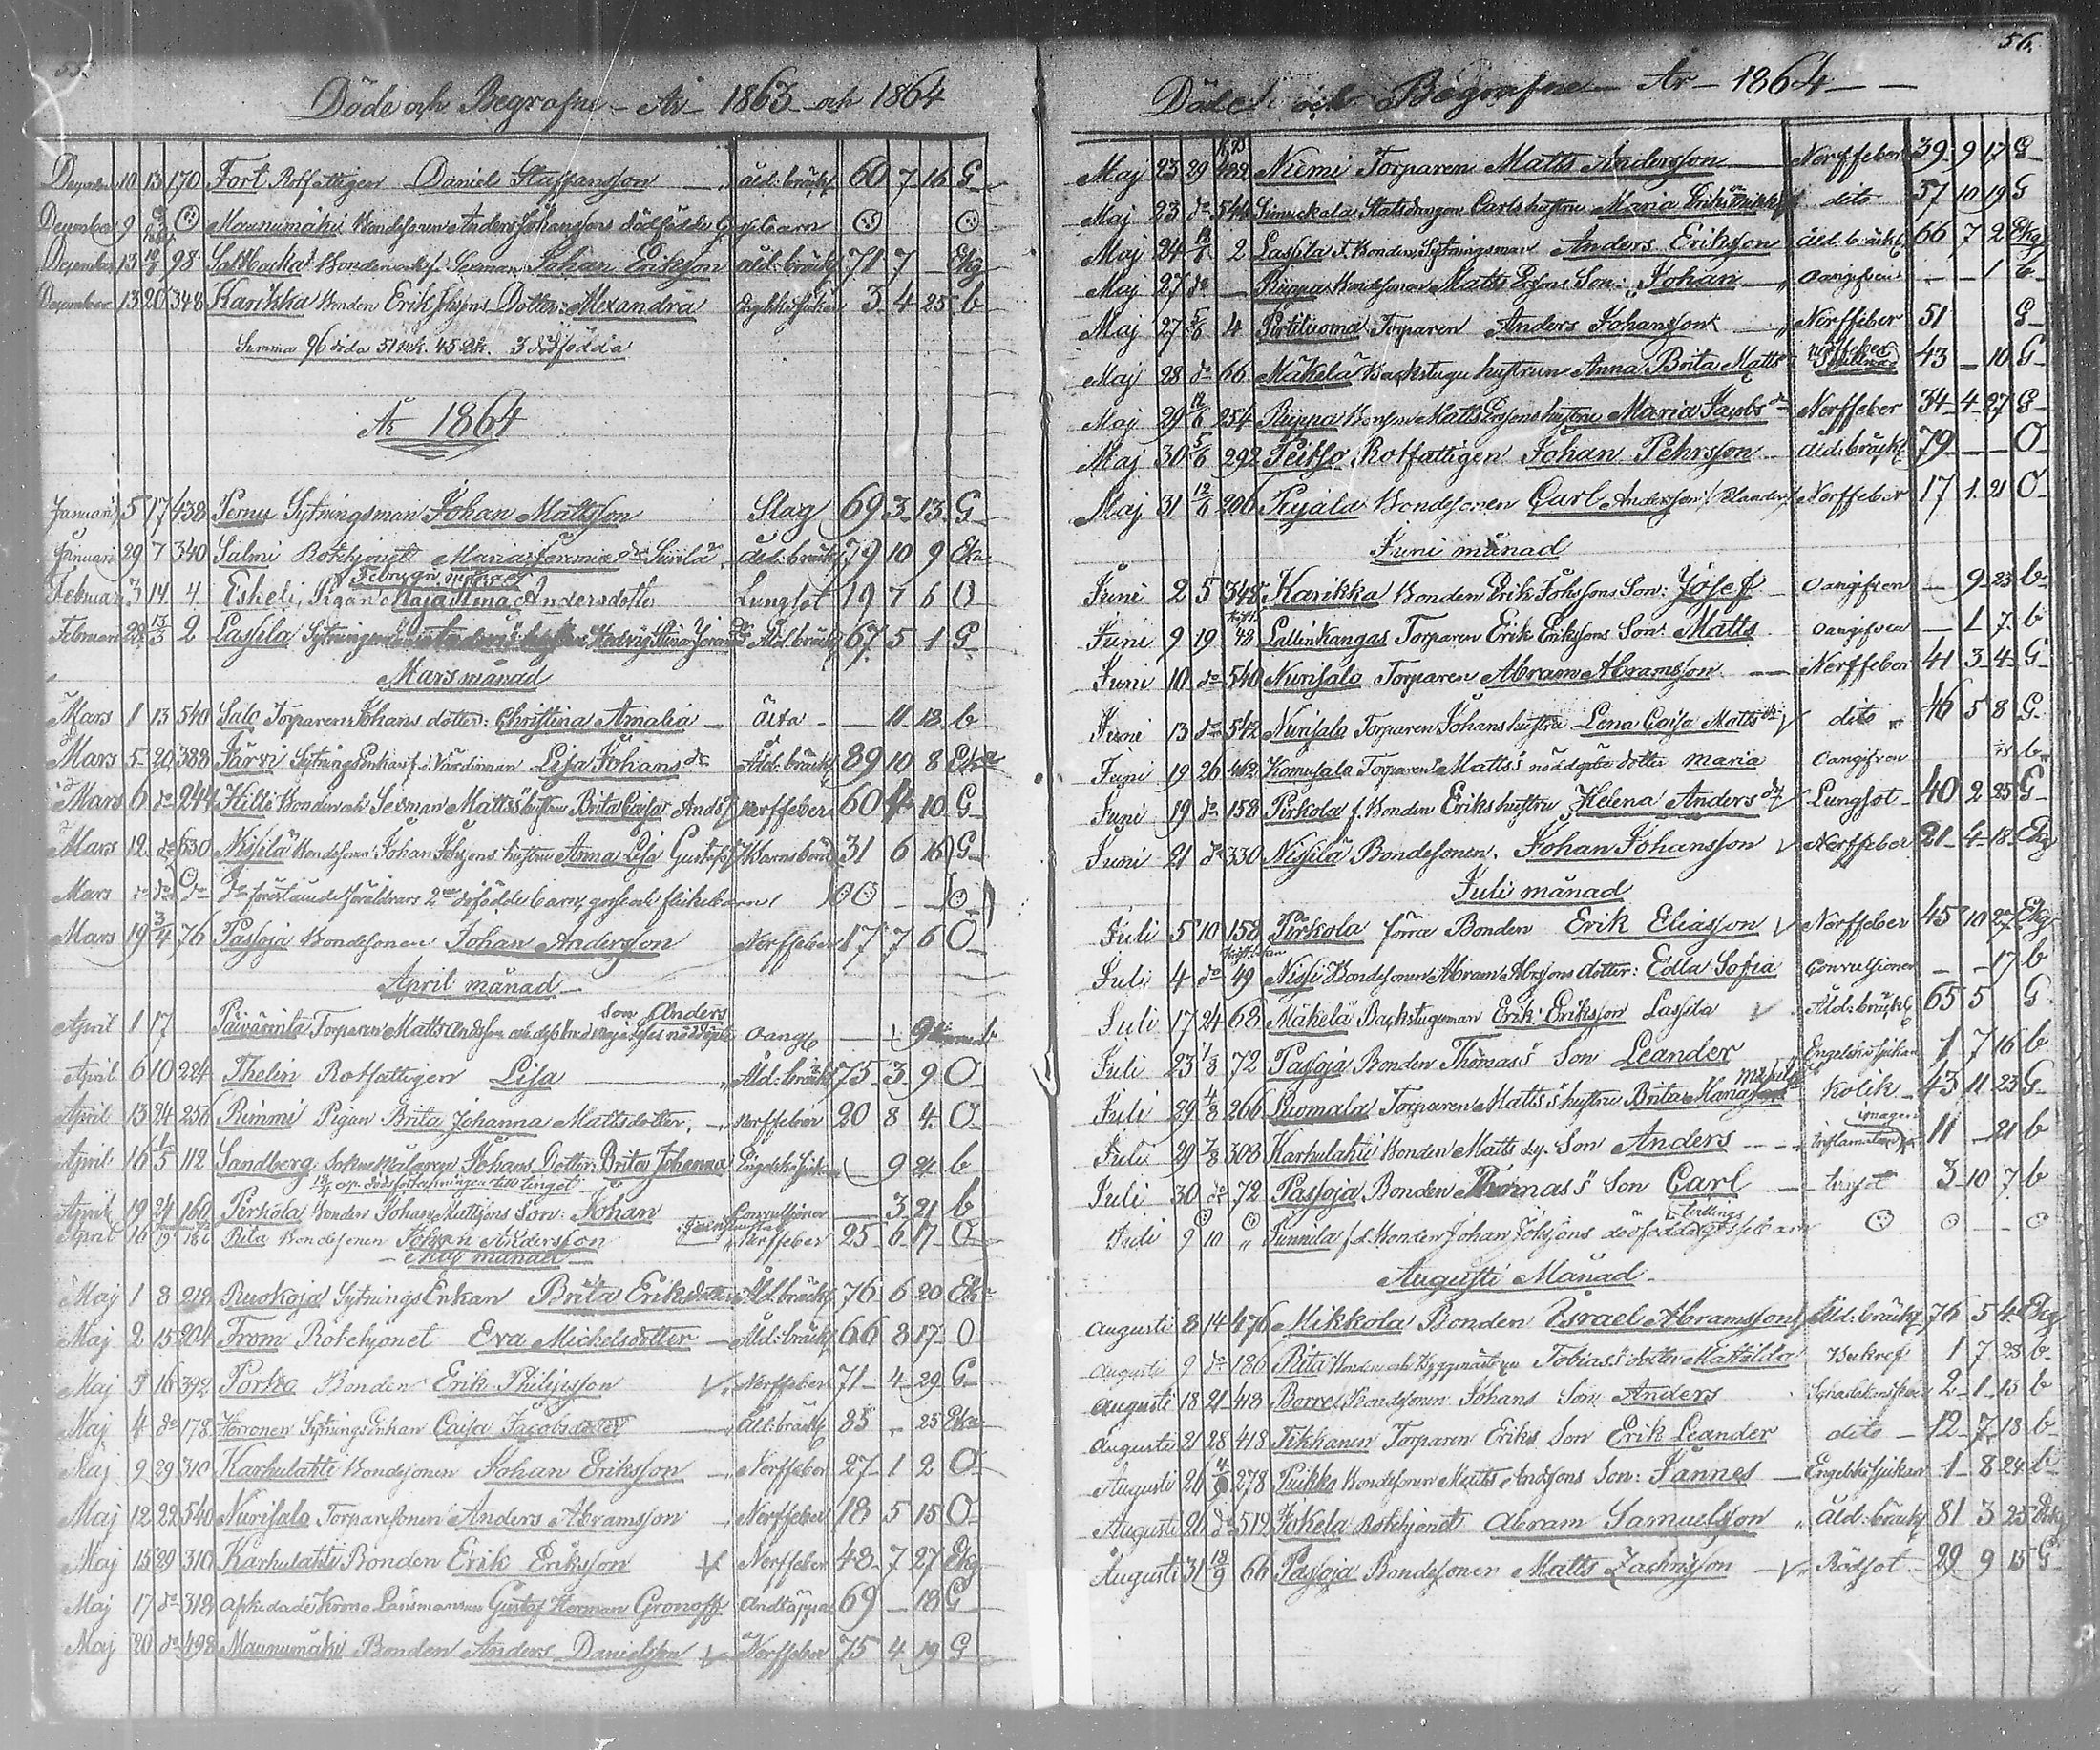 55.
Döde och Begrafne - År - 1863 och 1864
December 10 13 170 Fort Rotfattigen Daniel Staffansson åld:bräckl 60 7 16 G
December 9 Maunumäki Bondesonen Anders Johanssons dödfödde
December 13 98 Johan Eriksson åld:bräckl 71 7 Ekg
December 13 20 348 Karikka Bonden Erik Johssons Dotter: Alexandra 3 4 25 b
Summa 96 döda 51 mk. 45 qk. 3 dödfödda
År 1864
Januari 5 17 438 Pernu Sytningsman Johan Mattsson Slag 69 3 13 G
Januari 29 7 340 Salmi Rotehjonet Maria Jeremiædr åld:bräckl 79 10 9 Eka
Februari månad
Februari 3 14 4 Eskeli, Pigan Maja Stina Andersdotter Lungsot 19 7 6 O
Februari 28 13/3 2 Lassila Åld:bräckl 67 5 1 G
Mars månad
Mars 1 13 540 Salo Torparen Johans dotter: Christina Amalia 11 18 b
Mars 5 20 388 Järvi Sytnings Enkan f.d. Värdinnan Lisa Johans dr Åld:bräckl 89 10 8 Eka
Mars 6 do 244 Hilli Bonden och Sexman Matts's hustru Brita Caisa Ands dr Nerffeber 60 4 10 G
Mars 12 do 330 Nissilä Bondesonen Johan Johssons hustru Anna Lisa Gustafs dr Barnsbörd 31 6 15 G
Mars do do do förestående föräldrars 2ne dödfödde barn, gosse och flickebarn
Mars 19 3/4 76 Passoja Bondesonen Johan Andersson Nerffeber 17 7 6 O
April månad
son Anders
April 1 17 Päivärinta Torparen Matts Andssons Oangb 9
April 6 10 224 Thelin Rotfattigen Lisa Åld:bräckl 75 3 9 O
April 13 24 256 Rimmi Pigan Brita Johanna Mattsdotter, Nerffeber 20 8 4 O
April 16 1/5 112 Sandberg Sokne Målaren Johans Dotter: Brita Johanna Engelska sjukan 9 24 b
April 19 24 160 Pirkola Bonden Johan Mattssons Son: Johan Convultioner 3 21 b
April 16 186 Rita Bondesonen Johan Andersson Nerffeber 25 6 17 O
Maj månad
Maj 1 8 212 Ruokoja Sytnings Enkan Brita Eriksdotter Åld:bräckl 76 6 20 Eka
Maj 2 15 204 From Rotehjonet Eva Michelsdotter Åld:bräckl 66 8 17 O
Maj 3 16 392 Porko Bonden Erik Philipsson Nerffeber 71 4 29 G
Maj 4 do 178 Herronen Sytnings Enkan Caisa Jacobsdotter Åld:bräckl 85 25 Eka
Maj 9 29 310 Karhulahti Bondesonen Johan Eriksson Nerffeber 27 1 2 O
Maj 12 22 540 Nurisalo Torparesonen Anders Abramsson Nerffeber 18 5 15 O
Maj 15 29 310 Karhulahti Bonden Erik Eriksson Nerffeber 48 7 27 Ekg
Maj 17 do 312 afskedade Krono Länsmannen Gustaf Herman Gronoff Andtäppa 69 18 G
Maj 20 do 498 Maunumäki Bonden Anders Danielsson Nerffeber 75 4 19 G
56.
Döde och Begrafne - År - 1864
Maj 23 29 Niemi Torparen Matts Andersson Nerffeber 39 9 17 G
Maj 23 do 544 Carls hustru Maria Eriks dito 57 10 19 G
Maj 24 2 Lassila f. Bonden, Sytningsman Anders Eriksson åld:bräckl 66 7 2 Ekg
Maj 27 do Riippa Bondesonen Matts Erssons Son: Johan oangifven 1 b
Maj 27 5/6 4 Perttiluoma Torparen Anders Johansson Nerffeber 51 G
Maj 28 do 66 Mäkelä Backstugu hustrun Anna Brita Matts 43 10 G
Maj 29 12/6 254 Riippa Bondeson Matts Erssons hustru Maria Jacobs dr Nerffeber 34 4 27 G
Maj 30 5/6 292 Peitso Rotfattigen Johan Pehrsson åld:bräckl 79 O
Maj 31 12/6 206 Pujala Bondesonen Carl Andersson Nerffeber 17 1 21 O
Juni månad
Juni 2 5 348 Karikka Bonden Erik Johssons Son: Josef Oangifven 9 23 b
Juni 9 19 48 Lallinkangas Torparen Erik Erikssons Son: Matts oangifven 1 7 b
Juni 10 do 540 Nurisalo Torparen Abram Abramsson Nerffeber 41 3 4 G
Juni 13 do 542 Nurisalo Torparen Johans hustru Lena Caisa Matts dr dito 46 5 8 G
Juni 19 26 402 Komusalo Torparen Matts's nöddöpta dotter Maria Oangifven b
Juni 19 do 158 Pirkola f. Bonden Eriks hustru Helena Anders dr Lungsot 40 2 25 G
Juni 21 do 330 Nissilä Bondesonen, Johan Johansson Nerffeber 21 4 18 Ekg
Juli månad
Juli 5 10 158 Pirkola förra Bonden Erik Eliasson Nerffeber 45 10 27 Ekg
Juli 4 do 49 Nisse Bondesonen Abram Abrssons dotter: Edla Sofia Convultioner 17 b
Juli 17 24 68 Mäkelä Backstugeman Erik Eriksson Lassila Åld:bräckl 65 5 G
Juli 23 7/8 72 Passoja Bonden Thomas's Son Leander Engelska sjukan 1 7 16 b
Juli 29 4/8 266 Luomala Torparen Matts's hustru Brita Maria Kolik 43 11 23 G
Juli 29 7/8 308 Karhulahti Bonden Matts d.y. Son Anders 11 21 b
Juli 30 do 72 Passoja Bonden Thomas's Son Carl 3 10 7 b
Juli 9 10 Junnila f.d. Bonden Johan Johssons dödfödda
Augusti Månad
Augusti 8 14 476 Mikkola Bonden Esrael Abramsson Åld:bräckl 76 5 4 Ekg
Augusti 9 do 186 Rita Bonden och Byggmästaren Tobias's dotter Mathilda 1 7 28 b
Augusti 18 21 48 Borre Bondesonen Johans Son Anders 2 1 13 b
Augusti 21 28 418 Tikkanen Torparen Eriks Son Erik Leander dito 12 7 18 b
Augusti 26 278 Puikko Bondesonen Matts Andssons Son: Jannes Engelska sjukan 1 8 24 b
Augusti 21 do 512 Jokela Rotehjonet Abram Samuelsson Åld:bräckl 81 3 25 Ekg
Augusti 31 18/9 66 Passoja Bondesonen Matts Zachrisson Rödsot 29 9 15 G